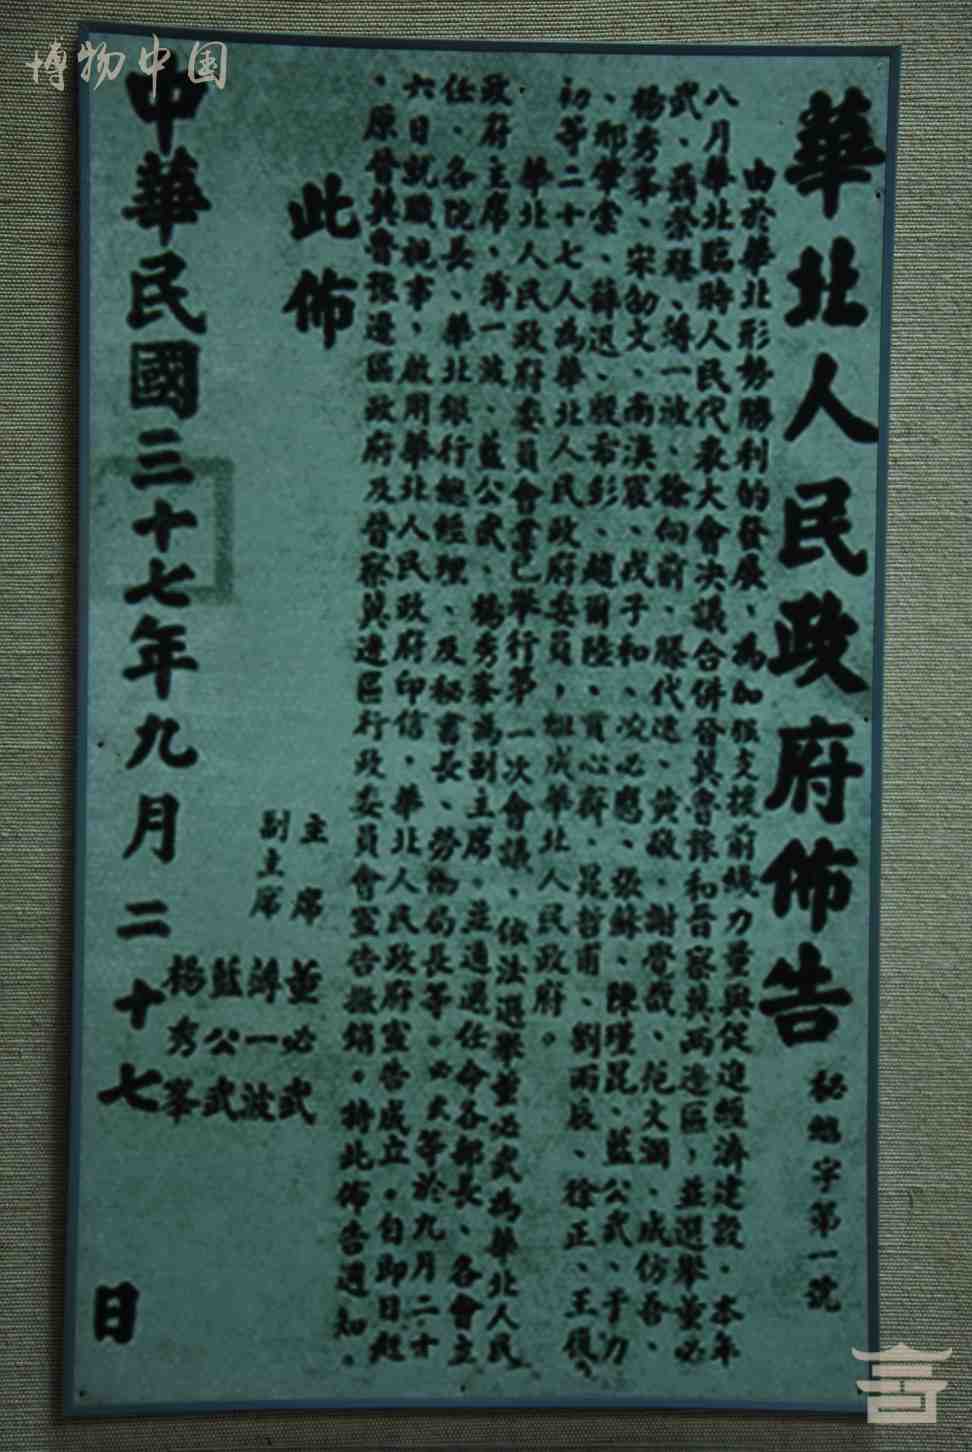 華北人民政府佈告
秘總字第一號
由於華北形势勝利的發展、為加强支援前綫力量與促進經濟建設．本年
八月華北臨時人民代表大會决議合併晉冀魯豫和晋察冀两邊區，並選舉董必
武、聶榮臻、薄一波、徐向前、滕代遠、黄敬、謝覺哉、范文瀾、成仿吾、
楊秀峯、宋劭文、南漢宸、戎子和、安必應、張蘇、陳瑾昆、藍公武、于力
、邢肇棠、薛迅、殷希彭、趙爾陸、賈心齋、晁哲甫、劉雨辰、徐正、王復
初等二十七人為華北人民政府委員，組成華北人民政府。
華北人民政府委員會業已舉行第一次會議、依法選舉董必武為華北人民
政府主席、薄一波、藍公武、楊秀峯為副主席、並通過任命各部長、各會主
任、各院長、華北銀行總經理、及秘書長、勞働局長等。必武等於九月二十
六日就職視事，啟用華北人民政府印信，華北人民政府宣告成立。自即日起
、原晉冀魯豫邊區政府及晉察冀邊區行政委員會宣告撤銷。特此佈告週知。
此佈
主席 董必武
副主席 薄一波
藍公武
楊秀峯
中華民國三十七年九月二十七日
博物中国